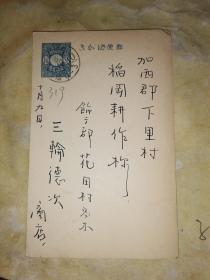 郵便はがき
加西郡下里村
稲岡耕作様
飾磨郡花田村
三輪德次
商店
十月九日
319